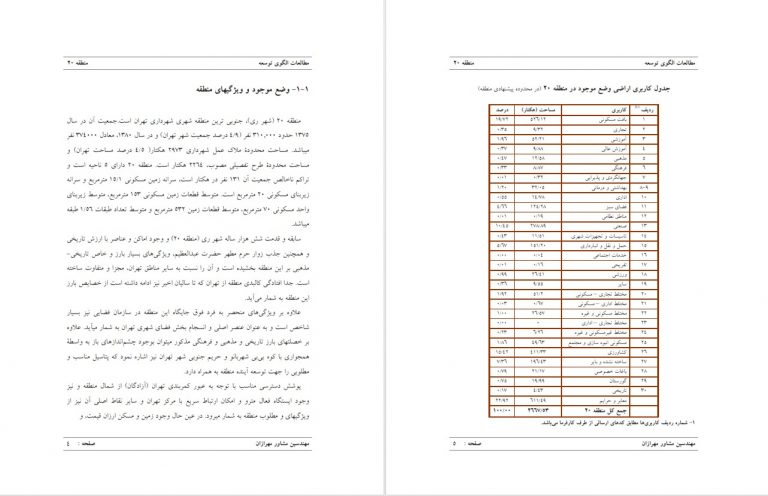 مطالعات الگوی توسعه
منطقه ۲۰
۱-۱- وضع موجود و ویژگیهای منطقه
منطقه ۲۰ (شهر ری)، جنوبی ترین منطقه شهری شهرداری تهران است.جمعیت آن در سال
۱۳۷۵ حدود ۳۱۰,۰۰۰ نفر (۴/۹ درصد جمعیت شهر تهران) و در سال ۱۳۸۰، معادل ۳۷۴۰۰۰ نفر
میباشد. مساحت محدودهٔ ملاک عمل شهرداری ۲۹۷۳ هکتار( ۴/۵ درصد مساحت تهران) و
مساحت محدودهٔ طرح تفصیلی مصوب، ۲۲۶۴ هکتار است. منطقه ۲۰ دارای ۵ ناحیه است و
تراکم ناخالص جمعیت آن ۱۳۱ نفر در هکتار است، سرانه زمین مسکونی ۱۵/۱ مترمربع و سرانه
زیربنای مسکونی ۲۰ مترمربع است. متوسط قطعات زمین مسکونی ۱۵۳ مترمربع، متوسط زیربنای
واحد مسکونی ۷۰ مترمربع، متوسط قطعات زمین ۵۳۲ مترمربع و متوسط تعداد طبقات ۱/۵۶ طبقه
میباشد.
سابقه و قدمت شش هزار ساله شهر ری (منطقه ۲۰) و وجود اماکن و عناصر با ارزش تاریخی
و همچنین جذب زوار حرم مطهر حضرت عبدالعظیم، ویژگی‌های بسیار بارز و خاص تاریخی-
مذهبی بر این منطقه بخشیده است و آن را نسبت به سایر مناطق تهران، مجزا و متفاوت ساخته
است. جدا افتادگی کالبدی منطقه از تهران که تا سالیان اخیر نیز ادامه داشته است از خصایص بارز
این منطقه به شمار می‌آید.
علاوه بر ویژگی‌های منحصر به فرد فوق جایگاه این منطقه در سازمان فضایی نیز بسیار
شاخص است و به عنوان عنصر اصلی و انسجام بخش فضای شهری تهران به شمار میآید. علاوه
بر خصلتهای بارز تاریخی و مذهبی و فرهنگی مذکور میتوان بوجود چشم‌اندازهای باز به واسطهٔ
همجواری با کوه بی‌بی شهربانو و حریم جنوبی شهر تهران نیز اشاره نمود که پتانسیل مناسب و
مطلوبی را جهت توسعه آینده منطقه به همراه دارد.
پوشش دسترسی مناسب با توجه به عبور کمربندی تهران (آزادگان) از شمال منطقه و نیز
وجود ایستگاه فعال مترو و امکان ارتباط سریع با مرکز تهران و سایر نقاط اصلی آن نیز از
ویژگیهای و مطلوب منطقه به شمار میرود. در عین حال وجود زمین و مسکن ارزان قیمت، و
مهندسین مشاور مهرازان
صفحه : ٤
مطالعات الگوی توسعه
منطقه ۲۰
جدول کاربری اراضی وضع موجود در منطقه ۲۰ (در محدوده پیشنهادی منطقه)
ردیف (۱) کاربری مساحت (هکتار) درصد
۱ بافت مسکونی ۵۲۶/۱۲ ۱۹/۷۲
۲ تجاری ۹/۳۲ ۰/۳۵
۳ آموزشی ۳/۹۶
۴ آموزش عالی ۹/۸۸ ۰/۳۷
۵ مذهبی ۱۲/۵۸ ۰/۴۷
۶ فرهنگی ۸/۸۷ ۰/۳۳
۷ جهانگردی و پذیرایی ۰/۳۲ ۰/۰۱
۸-۹ بهداشتی و درمانی ۳۲/۰۵ ۱/۲۰
۱۰ اداری ۱۴/۷۷ ۰/۵۵
۱۱ فضای سبز ۱۲۴/۲۸ ۴/۶۶
۱۲ مناطق نظامی ۰/۱۹ ۰/۰۱
۱۳ صنعتی ۲۷۸/۸۹ ۱۰/۴۵
۱۴ تاسیسات و تجهیزات شهری ۱۱/۵۱ ۰/۴۳
۱۵ حمل و نقل و انبارداری ۱۵۱/۲۰ ۵/۶۷
۱۶ خدمات اجتماعی ۰/۰۴ ۰/۰۰
۱۷ تفریحی ۰/۱۶ ۰/۰۱
۱۸ ورزش ۲۶/۴۱ ۰/۹۹
۱۹ سایر ۹/۵۵ ۰/۳۶
۲۰ مختلط تجاری – مسکونی ۵۱/۲ ۱/۹۲
۲۱ مختلط اداری – مسکونی ۰/۶۷ ۰/۰۳
۲۲ مختلط مسکونی و غیره ۲۶/۵۷ ۱/۰۰
۲۳ مختلط تجاری – اداری ۰ ۰/۰۰
۲۴ مختلط غیرمسکونی و غیره ۶/۲۶ ۰/۲۳
۲۵ مسکونی انبوه سازی و مجتمع ۴۹/۶۳ ۱/۸۶
۲۶ کشاورزی ۴۱۱/۳۳ ۱۵/۴۲
۲۷ ساخته نشده و بایر ۱۹۶/۴۳ ۷/۳۶
۲۸ باغات خصوصی ۲۱/۱۷ ۰/۷۹
۲۹ گورستان ۱۹/۹۹ ۰/۷۵
۳۰ تاریخی ۴/۴۳ ۰/۱۷
معابر و حرایم ۶۱۱/۴۹ ۲۲/۹۲
جمع کل منطقه ۲۰ ۲۶۶۷/۵۳ ۱۰۰/۰۰
۱- شماره ردیف کاربری‌ها مطابق کدهای ارسالی از طرف کارفرما می‌باشد.
مهندسین مشاور مهرازان
صفحه : ٥